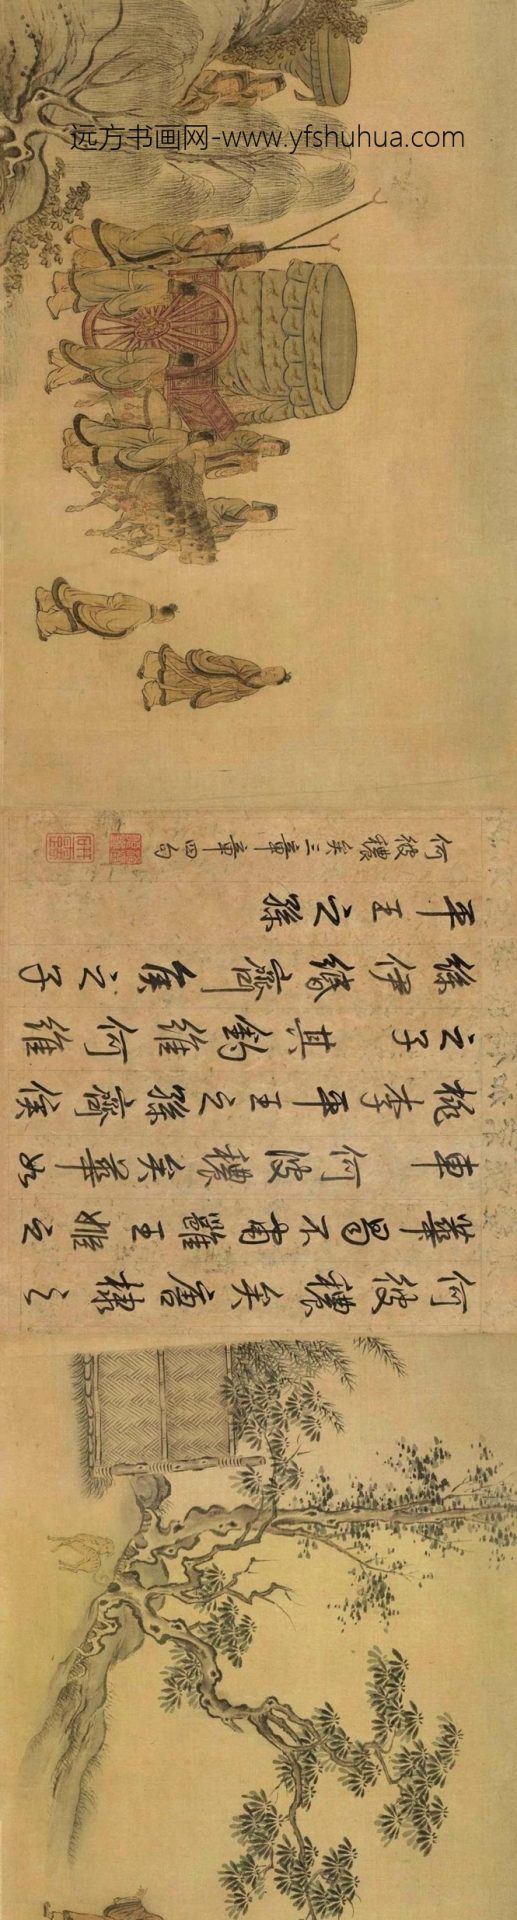 远方书画网-www.yfshuhua.com
何彼穠矣唐棣之
華曷不肅雝王姬之
車 何彼穠矣華如
桃李平王之孫齊侯
之子 其釣維何維
絲伊緡齊侯之子
平王之孫
何彼穠矣三章章四句